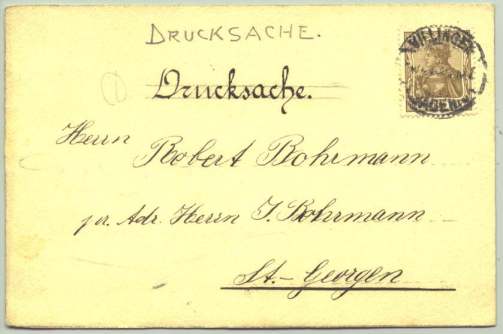 DRUCKSACHE.
VILLINGEN
(BADEN)
Drucksache.
Herrn
Robert Bohrmann
pr. Adr. Herrn J. Bohrmann
St.-Georgen